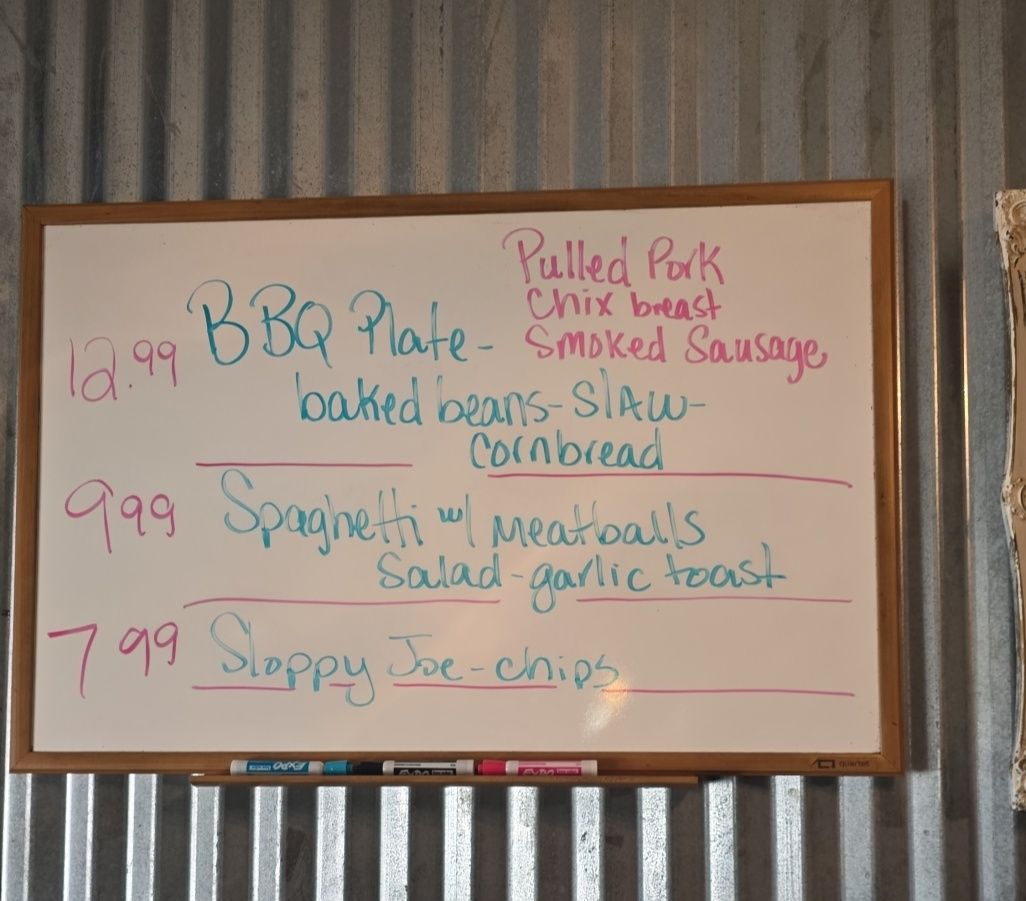 Pulled Pork
Chix breast
12.99 BBQ Plate- Smoked Sausage
baked beans-Slaw-
Cornbread
999 Spaghetti w/ Meatballs
Salad-garlic toast
799 Sloppy Joe-chips
EXPO EXPO EXPO
quartet